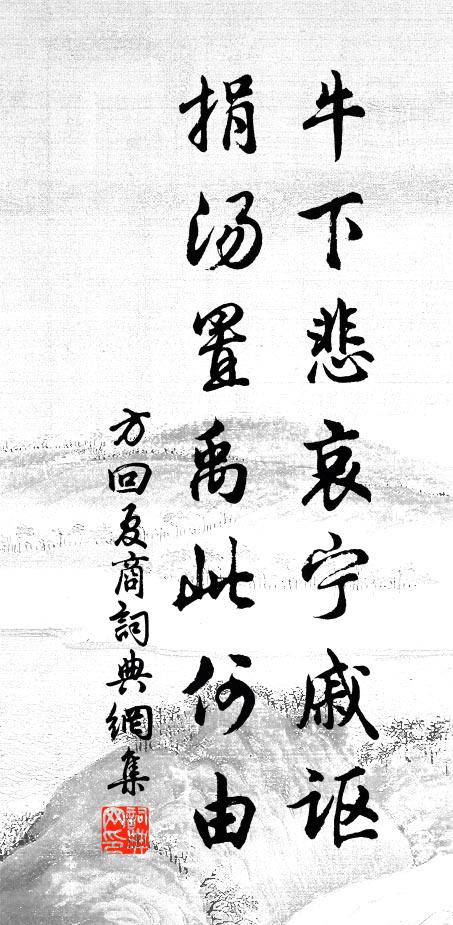 牛下悲哀宁戚讴
捐汤置禹此何由
方回夏商詞典網集